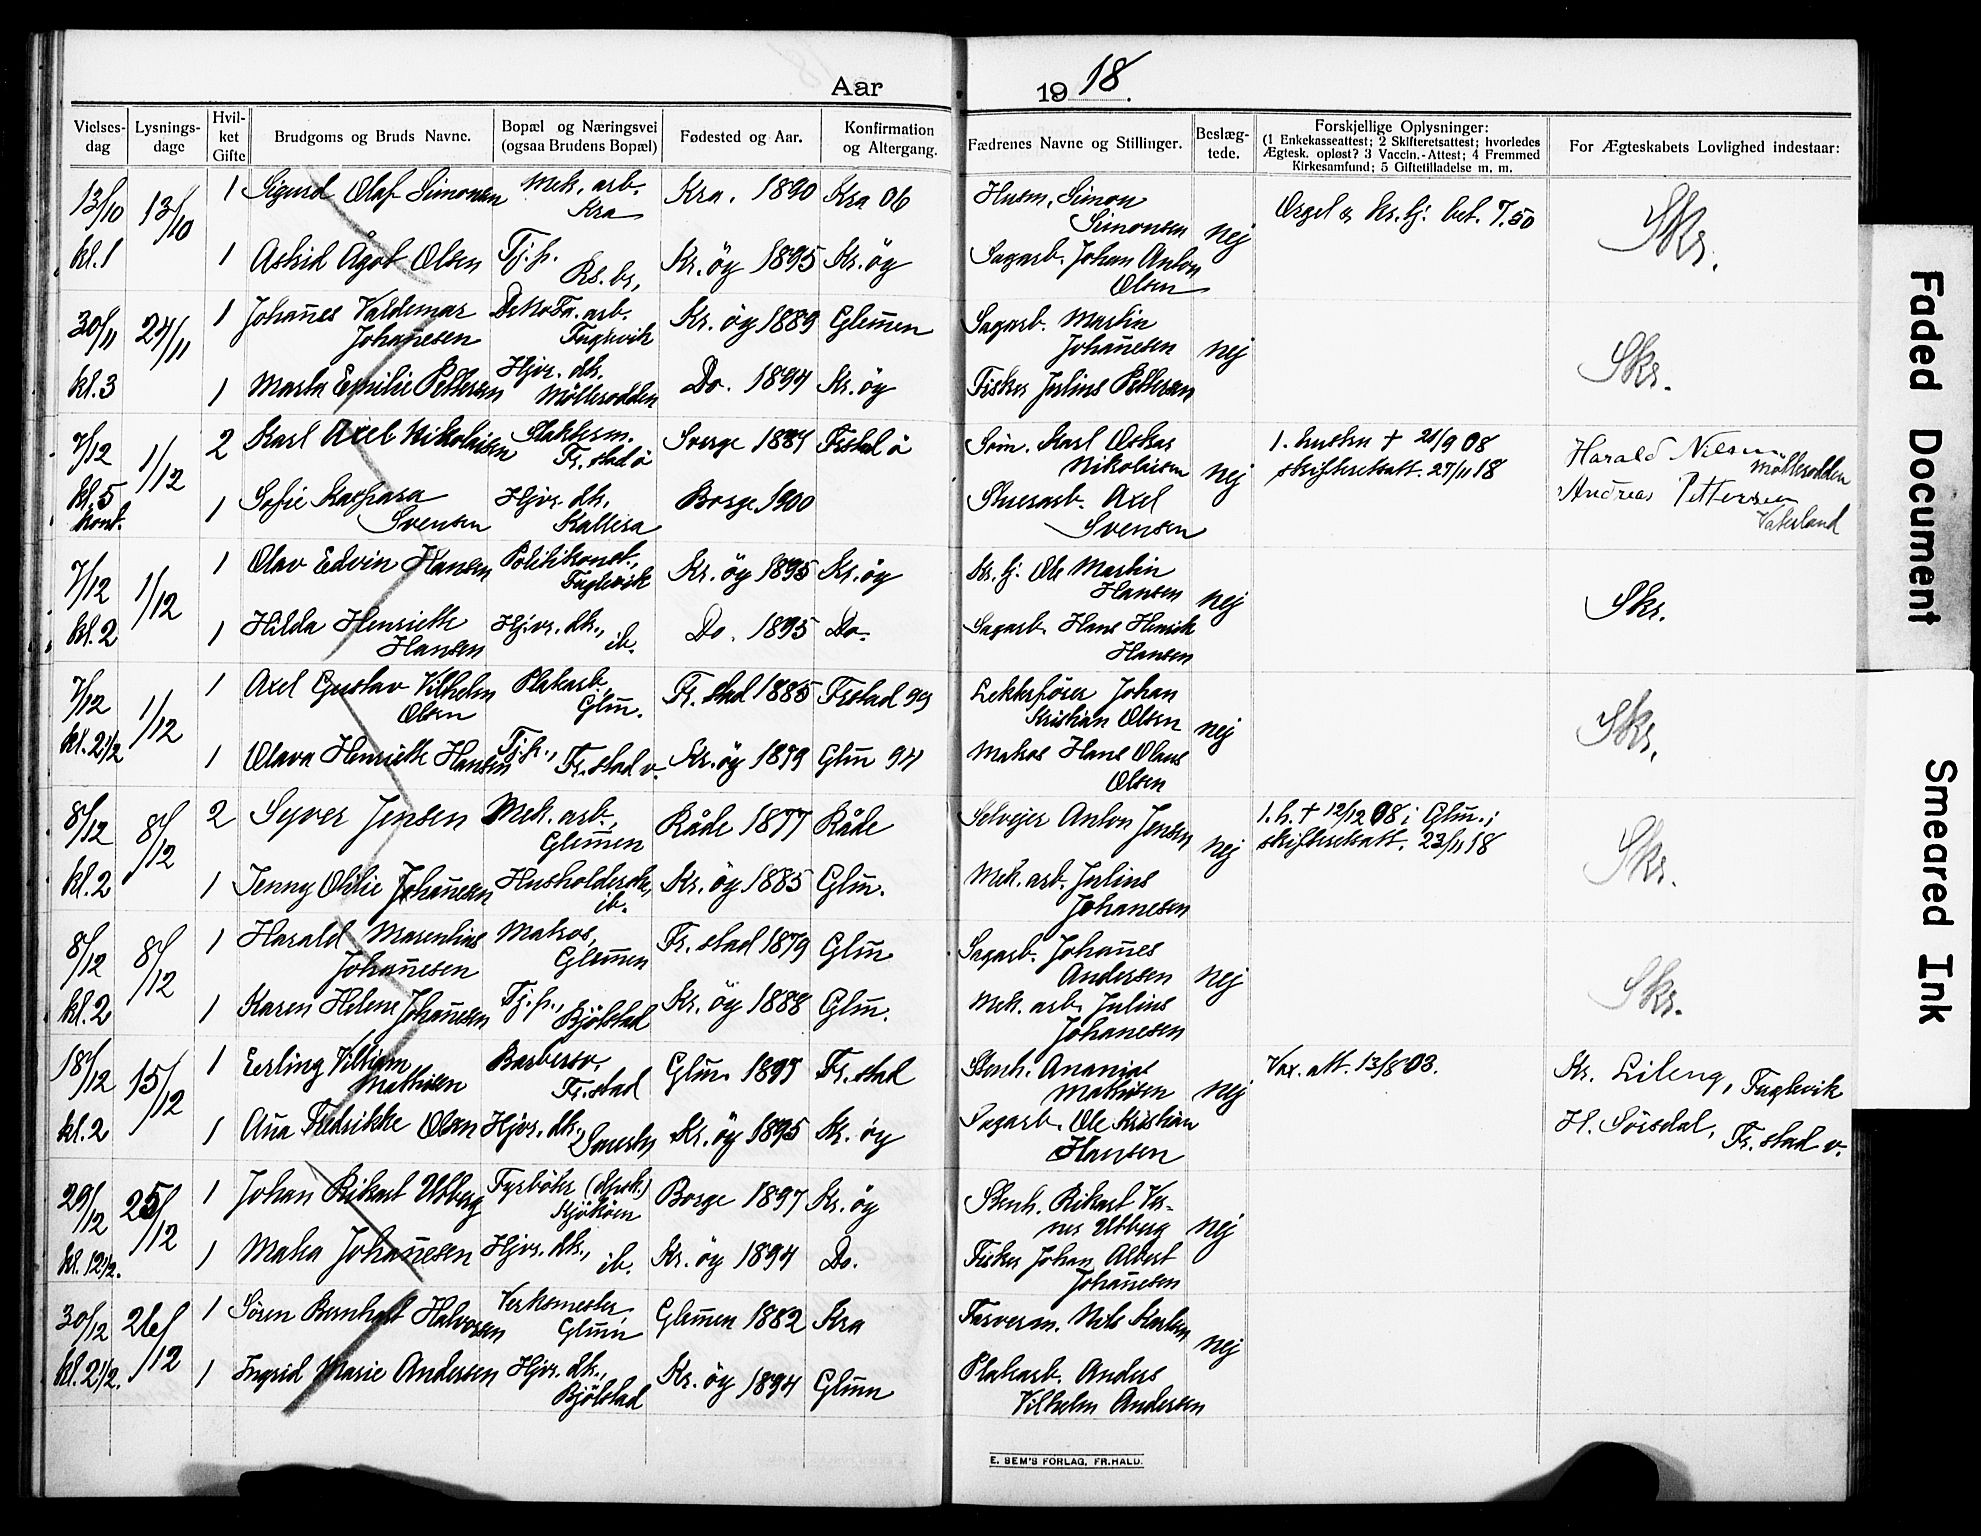 Aar 1918.
Vielses-dag | Lysnings-dage | Hvil-ket Gifte | Brudgoms og Bruds Navne. | Bopæl og Næringsvei (ogsaa Brudens Bopæl) | Fødested og Aar. | Konfirmation og Altergang. | Fædrenes Navne og Stillinger. | Beslæg-tede. | Forskjellige Oplysninger: (1 Enkekasseattest; 2 Skifteretsattest; hvorledes Ægtesk. opløst? 3 Vaccin.-Attest; 4 Fremmed Kirkesamfund; 5 Giftetilladelse m. m. | For Ægteskabets Lovlighed indestaar:
13/10 13/10 1 Sigurd Olaf Simonsen Mek. arb. Kra Kra. 1890 Kra 06 Husm. Simon Simonsen nej Orgel & kr. tj. bet. 7.50 Skr.
kl. 1 1 Astrid Ågot Olsen Tj. p. Kr. öy 1895 Kr. öy Sagarb. Johan Anton Olsen
30/11 24/11 1 Johan̄es Valdemar Johan̄esen arb. Fuglevik Kr. öy 1889 Glem̄en Sagarb. Martin Johan̄esen nej Skr.
kl. 3 1 Marta Emilie Pettersen Hjvr. dk. Möllerodden Do. 1894 Kr. öy Fisker Julius Pettersen
7/12 1/12 2 Karl Axel Nikolaisen Fr. stad ö Sverge 1884 Frstad ö Söm. Karl Oskar Nikolaisen nej 1. hustru † 21/9 08 skifteretsatt. 27/11 18 Harald Nilsen Möllerodden
kl. 5 kont. 1 Sofie Kaspara Svensen Hjvr. dk. Kallera Borge 1900 Stuerarb. Axel Svensen Andreas Pettersen Vaterland
7/12 1/12 1 Olav Edvin Hansen Politikonst., Fuglevik Kr. öy 1895 Kr. öy Kr. tj. Ole Martin Hansen nej Skr.
kl. 2 1 Hilda Henriette Hansen Hjvr. dk., ib. Do. 1895 Do. Sagarb. Hans Henrik Hansen
7/12 1/12 1 Axel Gustav Vilhelm Olsen Platearb. Glm̄. Fr. stad 1885 Frstad 99 Lekterfører Johan Kristian Olsen nej Skr.
kl. 2 1/2 1 Olava Henriette Hansen Tj. p., Fr. stad v. Kr. öy 1879 Glm̄ 94 Matros Hans Olaus Olsen
8/12 8/12 2 Syver Jensen Mek. arb., Glem̄en Råde 1877 Råde Selvejer Anton Jensen nej 1. h. † 12/12 08 i Glm̄.; skifteretsatt. 23/11 18 Skr.
kl. 2 1 Jenny Otilie Johan̄esen Husholderske, ib. Kr. öy 1885 Glm̄. Mek. arb. Julius Johan̄esen
8/12 8/12 1 Harald Marentius Johan̄esen Matros, Glem̄en Fr. stad 1879 Glm̄ Sagarb. Johan̄es Andersen nej Skr.
kl. 2 1 Karen Helene Johan̄esen Tj. p., Bjölstad Kr. öy 1888 Glm̄. Mek. arb. Julius Johan̄esen
18/12 15/12 1 Erling Villiam Mathisen Barbersv., Fr. stad Glm̄ Fr. stad Stenh. Ananias Mathisen nej Vax. att. 13/8 03. Kr. Lileng, Fuglevik
kl. 2 1 An̄a Fredrikke Olsen Hjvr. dk., Kr. öy 1895 Kr. öy Sagarb. Ole Kristian Hansen H. Sörsdal, Fr. stad v.
29/12 25/12 1 Johan Rikart Utberg Fyrböter Borge 1897 Kr. öy Stenh. Rikart Verner Utberg nej
kl. 12 1/2. 1 Marta Johan̄esen Hjvr. dk., ib. Kr. öy 1894 Do. Fisker Johan Albert Johan̄esen
30/12 26/12 1 Sören Bernhart Halvorsen Verksmester, Glm̄ Glem̄en 1882 Kra nej
kl. 2 1/2. 1 Ingrid Marie Andersen Hjvr. dk., Bjölstad Kr. öy 1894 Glm̄n Platearb. Anders Vilhelm Andersen
E. SEM'S FORLAG, FR.HALD.
Faded Document
Smeared Ink